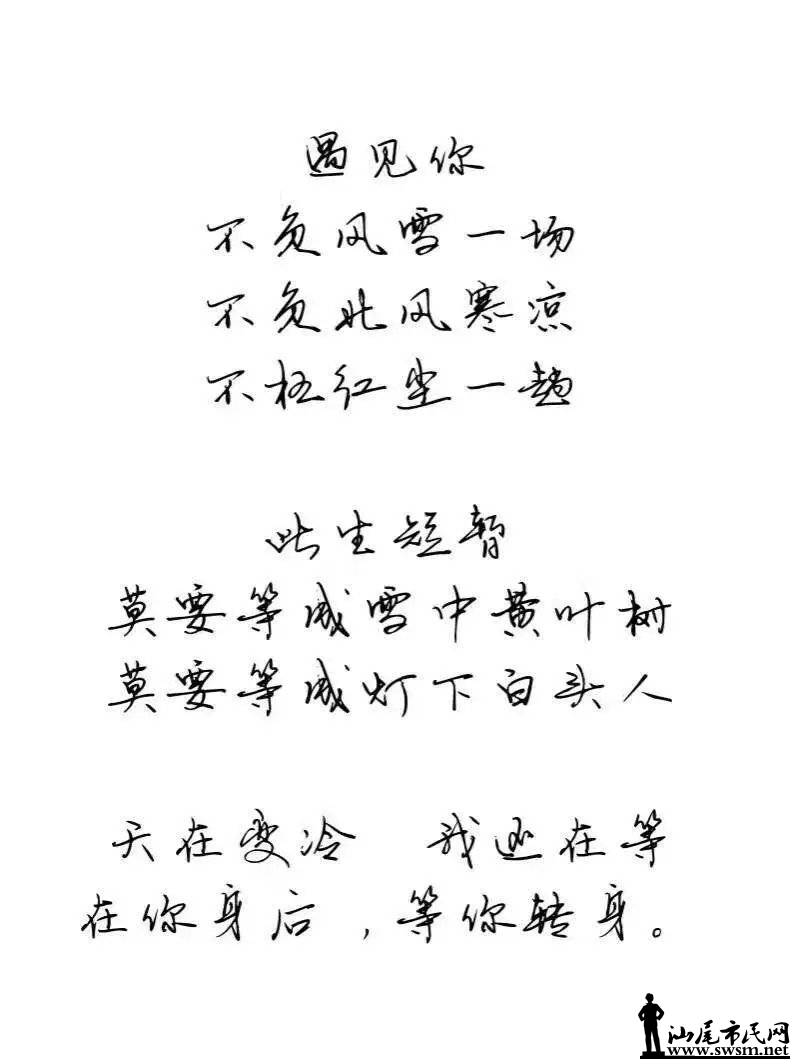 遇见你
不负风雪一场
不负北风寒凉
不枉红尘一趟
此生短暂
莫要等成雪中黄叶树
莫要等成灯下白头人
天在变冷 我还在等
在你身后，等你转身。
汕尾市民网
www.swsm.net